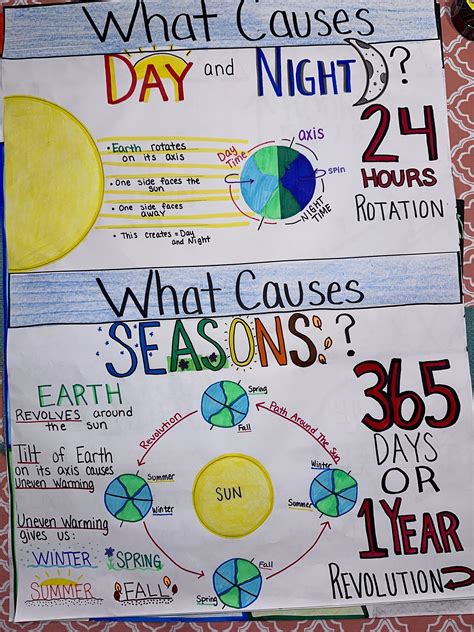 What Causes
DAY and NIGHT?
• Earth rotates
on its axis
• One side faces the
sun
• One side faces
away
• This creates = Day
and Night
DAY TIME
axis
SPIN
NIGHT TIME
24
HOURS
ROTATION
What Causes
SEASONS?
EARTH
REVOLVES around
the sun
Tilt of Earth
on its axis causes
Uneven Warming
Uneven Warming
gives us:
WINTER SPRING
SUMMER FALL
Revolution
Path Around The Sun
Spring
Fall
Summer
Winter
SUN
Winter
Summer
Fall
Spring
365
DAYS
OR
1 YEAR
REVOLUTION